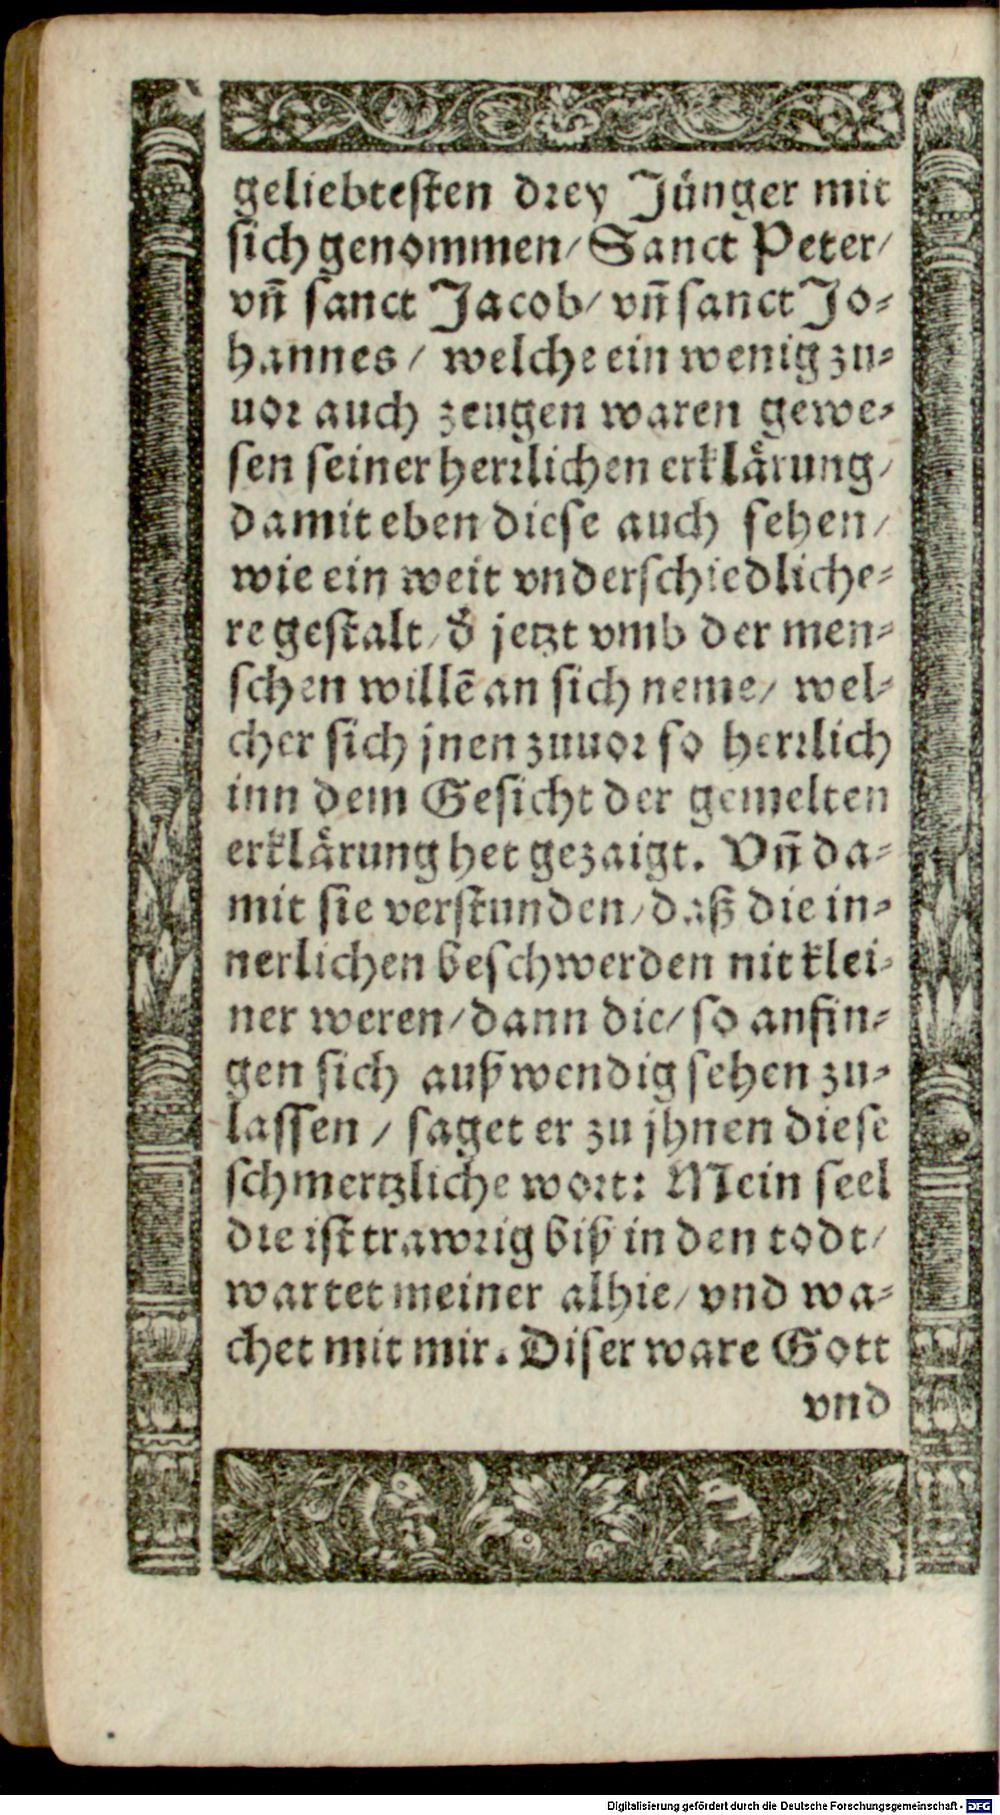 geliebteſten drey Jünger mit
ſich genommen/ Sanct Peter/
vñ ſanct Jacob/ vñ ſanct Jo⸗
hannes / welche ein wenig zu⸗
uor auch zeugen waren gewe⸗
ſen ſeiner herꝛlichen erklärung/
damit eben dieſe auch ſehen/
wie ein weit vnderſchiedliche⸗
re geſtalt/ d̕ jetzt vmb der men⸗
ſchen willē an ſich neme/ wel⸗
cher ſich jnen zuuor ſo herꝛlich
inn dem Geſicht der gemelten
erklärung het gezaigt. Vñ da⸗
mit ſie verſtunden/ daß die in⸗
nerlichen beſchwerden nit klei⸗
ner weren/ dann die/ ſo anfin⸗
gen ſich außwendig ſehen zu⸗
laſſen / ſaget er zu jhnen dieſe
ſchmertzliche wort: Mein ſeel
die iſt trawrig biß in den todt/
wartet meiner alhie/ vnd wa⸗
chet mit mir. Diſer ware Gott
vnd
Digitalisierung gefördert durch die Deutsche Forschungsgemeinschaft - DFG